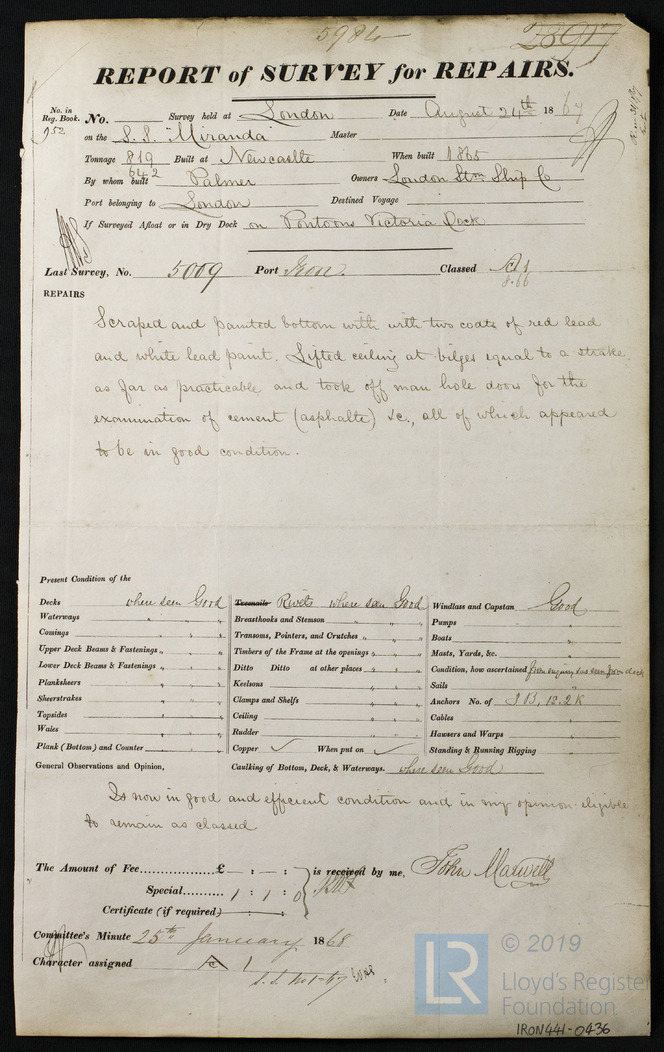 5984
2891
REPORT of SURVEY for REPAIRS.
No. in Reg. Book. No. Survey held at London Date August 24th 1867
952 on the S.S. "Miranda" Master
Tonnage 819 Built at Newcastle When built 1865
642
By whom built Palmer Owners London Stm Ship Co
Port belonging to London Destined Voyage
If Surveyed Afloat or in Dry Dock on Pontoons Victoria Dock
Last Survey, No. 5009 Port Iron. Classed A1
8.66
REPAIRS
Scraped and painted bottom with with two coats of red lead
and white lead paint. Lifted ceiling at bilges equal to a strake
as far as practicable and took off man hole doors for the
examination of cement (asphalte) &c., all of which appeared
to be in good condition.
Present Condition of the
Decks where seen Good
Waterways " " "
Comings " " "
Upper Deck Beams & Fastenings " " "
Lower Deck Beams & Fastenings " " "
Planksheers " " "
Sheerstrakes " " "
Topsides " " "
Wales " " "
Plank (Bottom) and Counter " " "
Treenails Rivets where seen Good
Breasthooks and Stemson " " "
Transoms, Pointers, and Crutches " " "
Timbers of the Frame at the openings " " "
Ditto Ditto at other places " " "
Keelsons " " "
Clamps and Shelfs " " "
Ceiling " " "
Rudder " " "
Copper ✓ When put on ✓
Windlass and Capstan Good
Pumps "
Boats "
Masts, Yards, &c. "
Condition, how ascertained from enquiry & as seen from deck
Sails "
Anchors No. of 3 B, 1S. 2K
Cables "
Hawsers and Warps "
Standing & Running Rigging "
General Observations and Opinion,
Caulking of Bottom, Deck, & Waterways. where seen Good
Is now in good and efficient condition and in my opinion eligible
to remain as classed
The Amount of Fee £ — : — : — is received by me, John Maxwell
Special 1 : 1 : 0
Certificate (if required) — : — : —
Committee's Minute 25th January 1868
Character assigned A 1
© 2019
LR
Lloyd's Register
Foundation
IRON441-0436